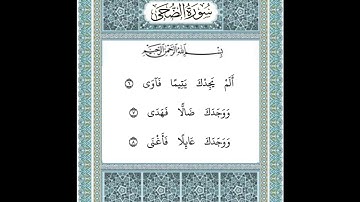 سُورَةُ الضُّحَى
بِسْمِ اللَّهِ الرَّحْمَٰنِ الرَّحِيمِ
أَلَمْ يَجِدْكَ يَتِيمًا فَآوَى ٦
وَوَجَدَكَ ضَالًّا فَهَدَى ٧
وَوَجَدَكَ عَائِلًا فَأَغْنَى ٨